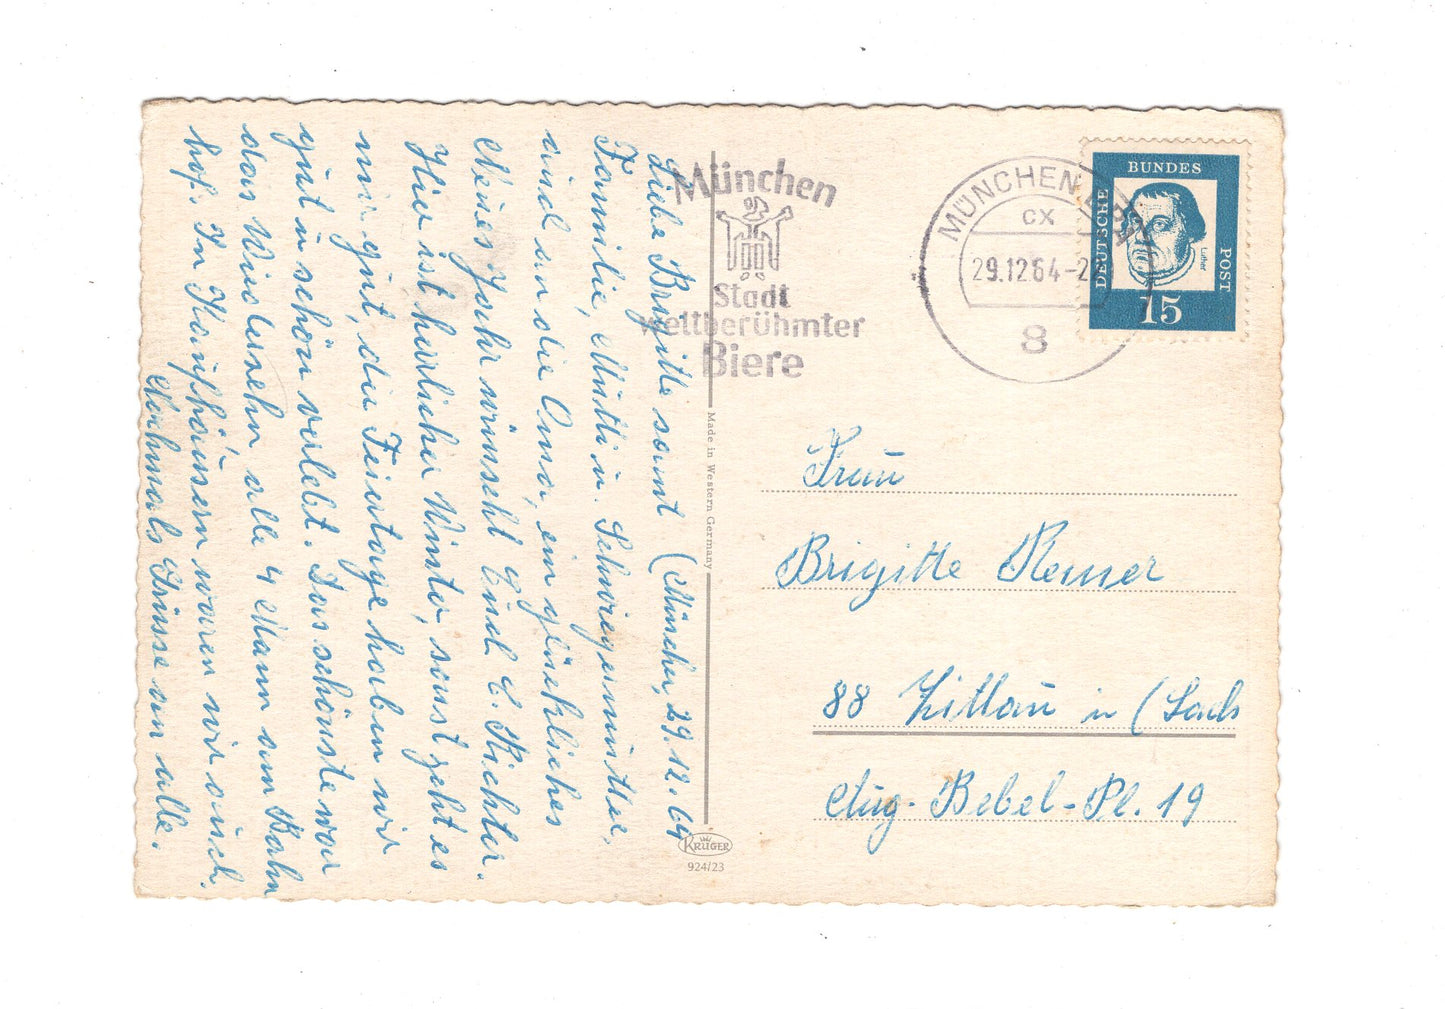 Liebe Brigitte samt (München, 29.12.64
Familie, Mutti u. Schwiegermutter,
und an die Oma, ein glückliches
Neues Jahr wünscht Euch E. Richter.
Hier ist herrlicher Winter, sonst geht es
mir gut, die Feiertage haben wir
gut u schön verlebt. Das schönste war
das Wiedersehn alle 4 Mann am Bahn
hof. In Kaufhäusern waren wir auch.
Nochmals Grüsse an alle.
München
Stadt
weltberühmter
Biere
MÜNCHEN
CX
29.12.64-2
8
DEUTSCHE
BUNDES
POST
Luther
15
Made in Western Germany
Frau
Brigitte Remer
88 Zittau in (Sachs
Aug. Bebel-Pl. 19
KRÜGER
924/23